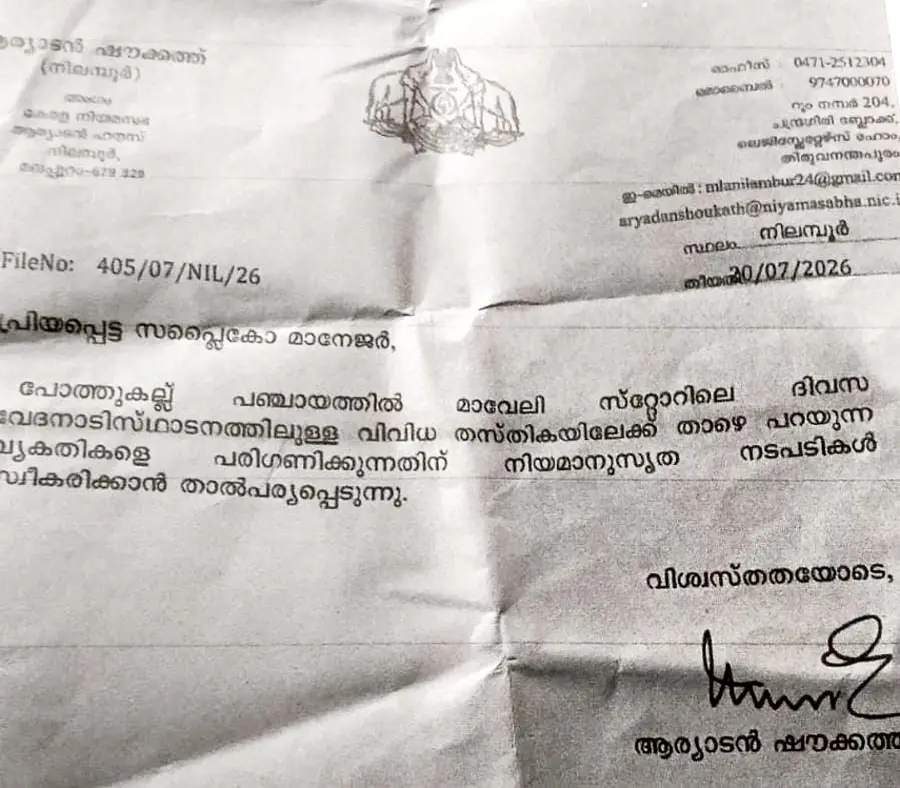 ആര്യാടൻ ഷൗക്കത്ത്
(നിലമ്പൂർ)
അംഗം
കേരള നിയമസഭ
ആര്യാടൻ ഹൗസ്
നിലമ്പൂർ,
മലപ്പുറം-679 329
ഓഫീസ് : 0471-2512304
മൊബൈൽ : 9747000070
റൂം നമ്പർ 204,
ചന്ദ്രഗിരി ബ്ലോക്ക്,
ലെജിസ്ലേറ്റേഴ്സ് ഹോം,
തിരുവനന്തപുരം
ഇ-മെയിൽ : mlanilambur24@gmail.com
aryadanshoukath@niyamasabha.nic.i
സ്ഥലം നിലമ്പൂർ
തീയതി 20/07/2026
FileNo: 405/07/NIL/26
പ്രിയപ്പെട്ട സപ്ലൈകോ മാനേജർ,
പോത്തുകല്ല് പഞ്ചായത്തിൽ മാവേലി സ്റ്റോറിലെ ദിവസ
വേദനാടിസ്ഥാടനത്തിലുള്ള വിവിധ തസ്തികയിലേക്ക് താഴെ പറയുന്ന
വ്യകതികളെ പരിഗണിക്കുന്നതിന് നിയമാനുസൃത നടപടികൾ
സ്വീകരിക്കാൻ താൽപര്യപ്പെടുന്നു.
വിശ്വസ്തതയോടെ,
ആര്യാടൻ ഷൗക്കത്ത